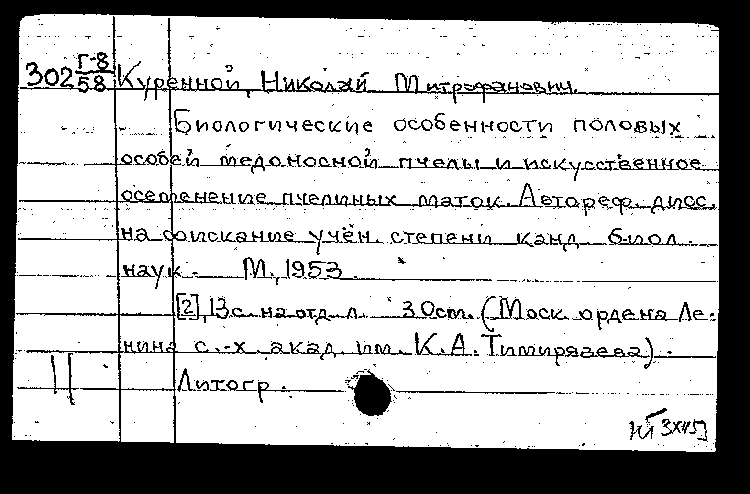 302 Г-8/58 Куренной, Николай Митрофанович.
Биологические особенности половых
особей медоносной пчелы и искусственное
осеменение пчелиных маток. Автореф. дисс.
на соискание учён. степени канд. биол.
наук. М., 1953.
[2], 13 с. на отд. л. 30 см. (Моск. ордена Ле-
нина с.-х. акад. им. К. А. Тимирязева).
Литогр.